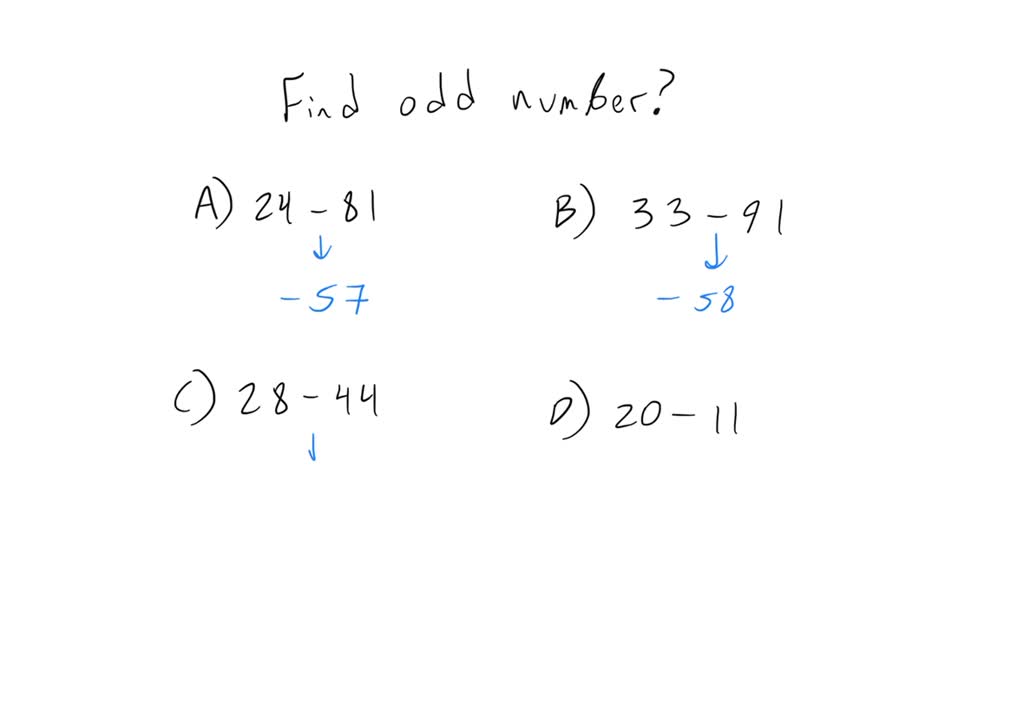 Find odd number?
A) 24 - 81
B) 33 - 91
↓
↓
- 57
- 58
C) 28 - 44
D) 20 - 11
↓